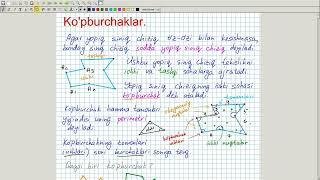 Ko'pburchaklar.
Agar yopiq siniq chiziq o'z-o'zi bilan kesishmasa,
bunday siniq chiziq sodda yopiq siniq chiziq deyiladi.
Ushbu yopiq siniq chiziq tekislikni
ichki va tashqi sohalarga ajratadi.
Yopiq siniq chiziqning ichki sohasi
ko'pburchak deb ataladi.
Ko'pburchak hamma tomonlari
yig'indisi uning perimetri
deyiladi.
Ko'pburchakning tomonlari
(uchlari) soni burchaklari soniga teng.
Qaysi biri ko'pburchak?
ichki nuqtalar